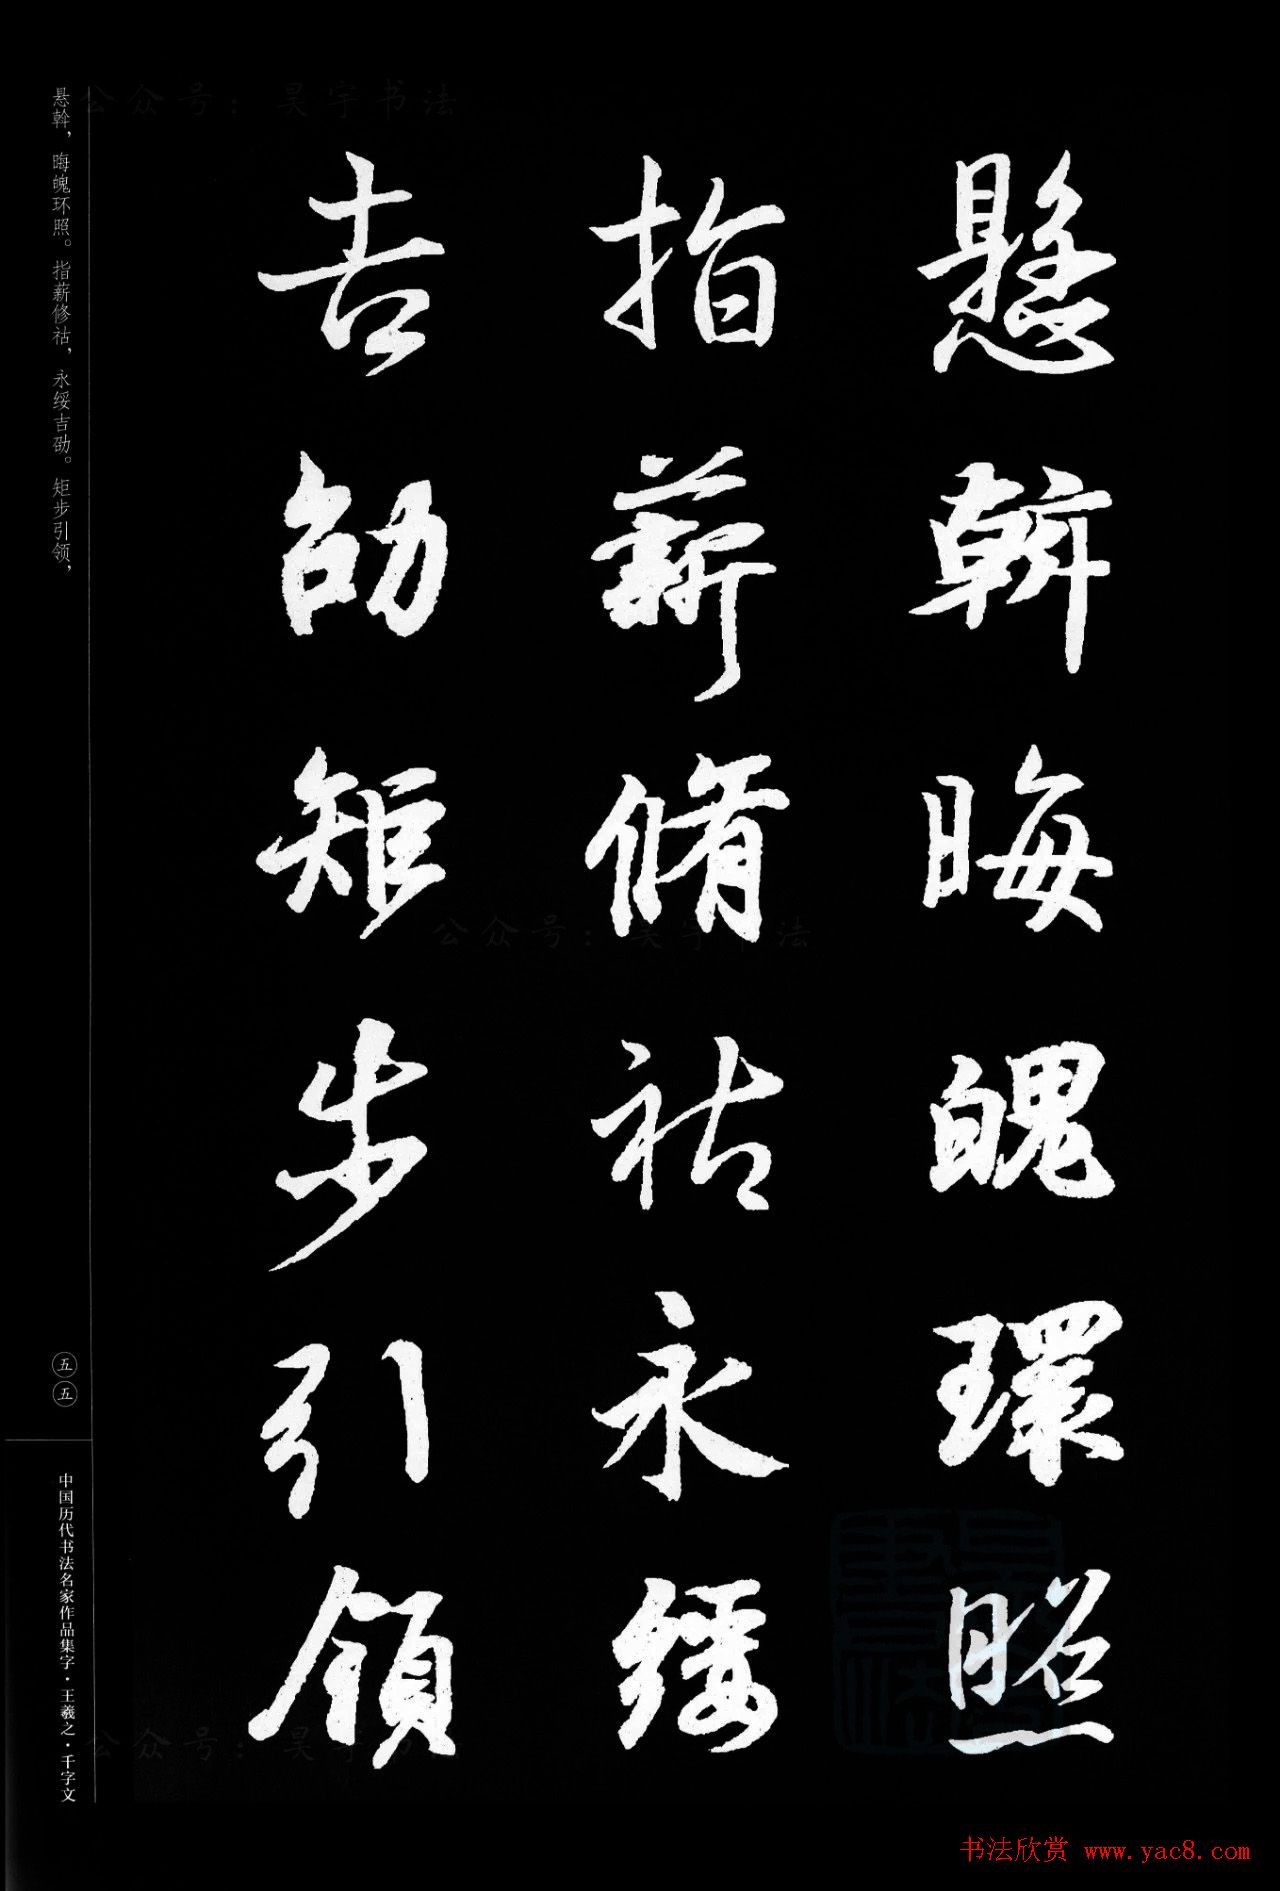 懸斡晦魄環照
指薪脩祜永綏
吉劭矩步引領
悬斡，晦魄环照。指薪修祜，永绥吉劭。矩步引领，
五五
中国历代书法名家作品集字·王羲之·千字文
公众号：昊宇书法
公众号：昊宇书法
公众号：昊宇书法
书法欣赏 www.yac8.com